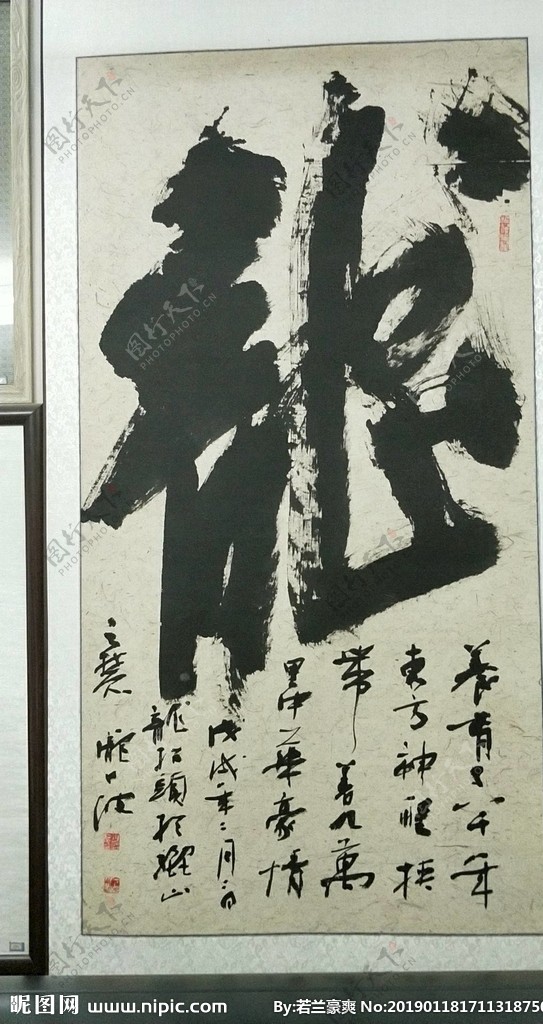 龍
養育了八千年
東方神
帶着九萬
里中華豪情
戊戌年二月二日
龍抬頭於驪山
之麓
图行天下
PHOTOPHOTO.CN
昵图网 www.nipic.com By:若兰豪爽 No:201901181711318750